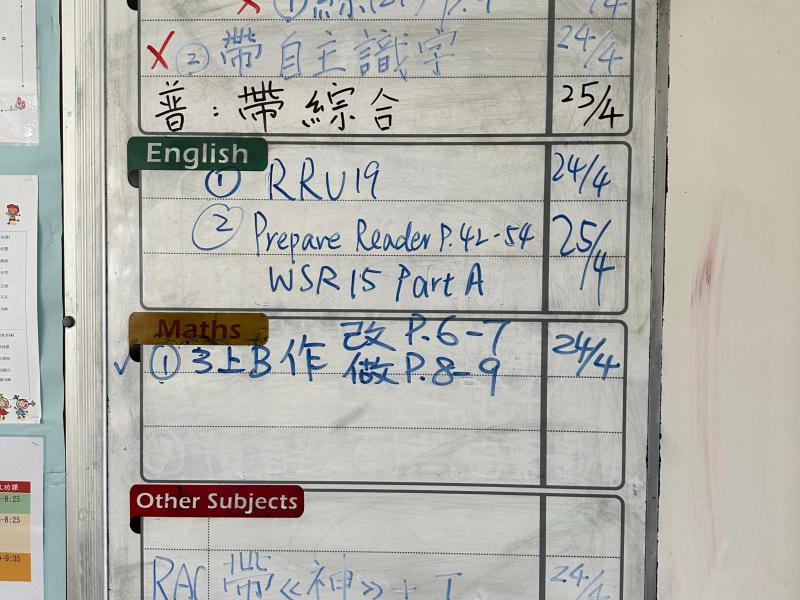 ① 綜
/4
X ② 帶自主識字 24/4
普：帶綜合 25/4
English
① RRU19 24/4
② Prepare Reader P.42-54 25/4
WSR15 Part A
Maths
改 P.6-7
✓ ① 3上B 作 做 P.8-9 24/4
Other Subjects
帶《神》+ 24/4
8:25
8:25
9:35